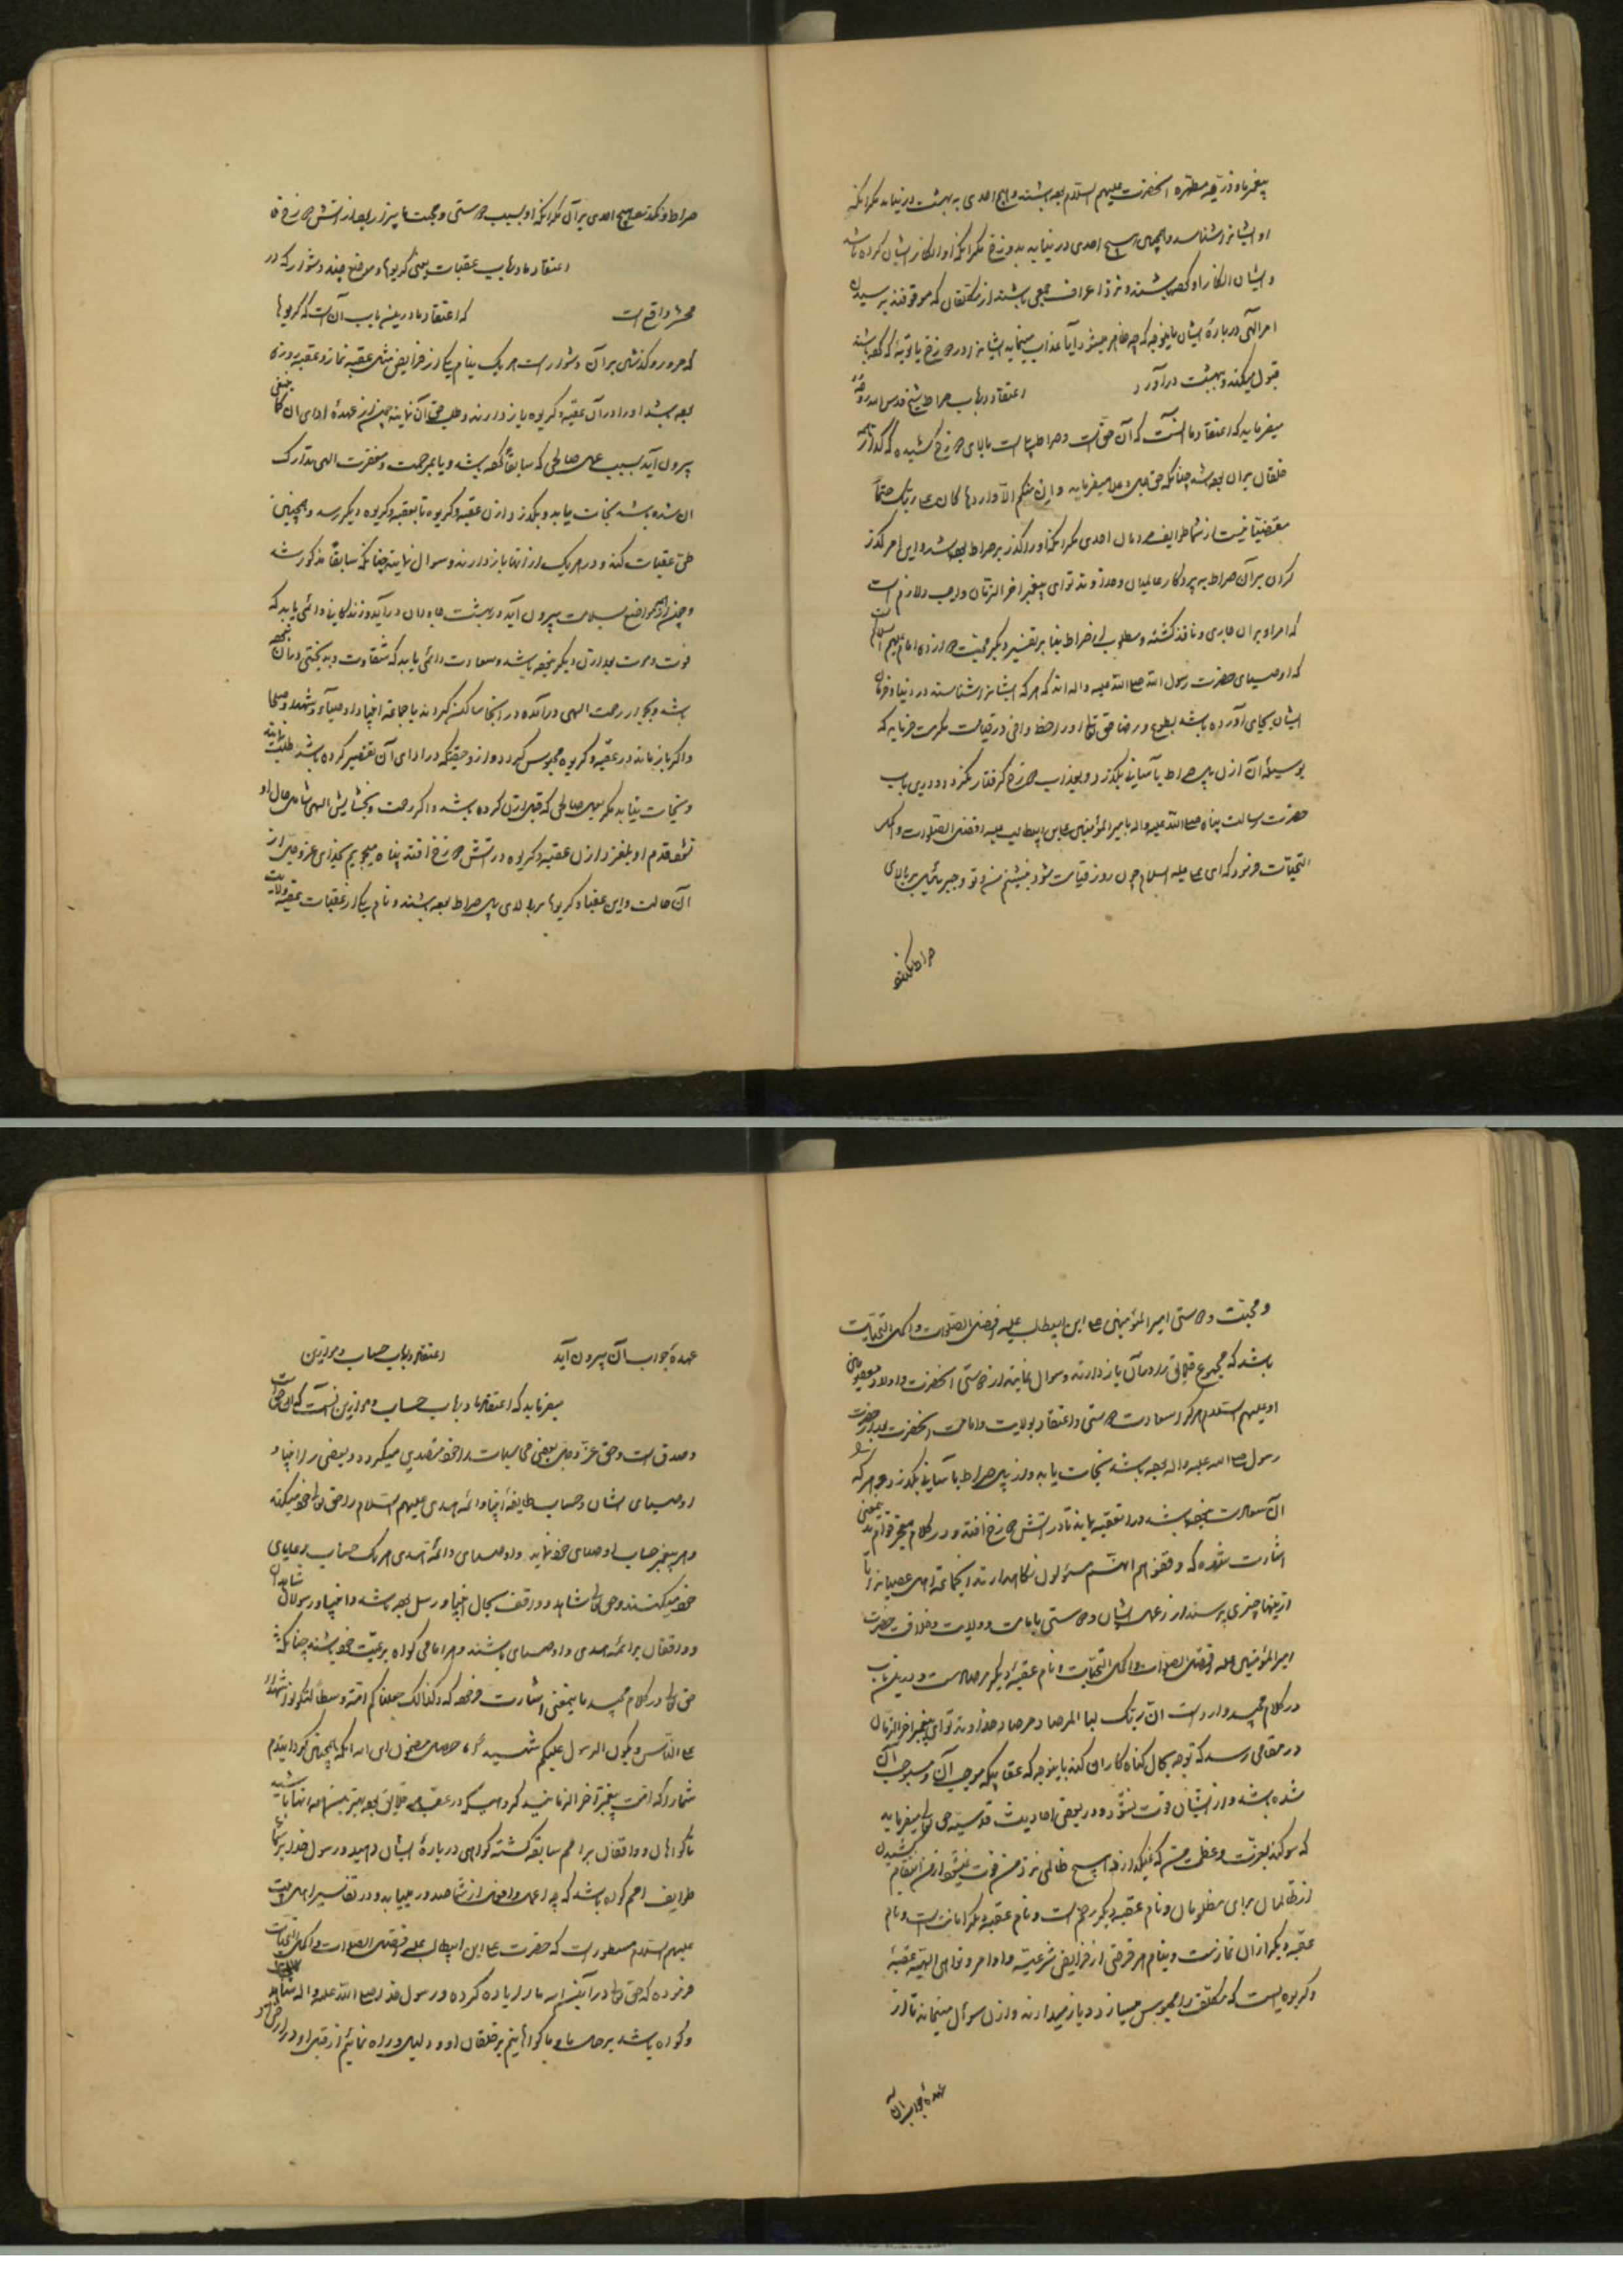 پیغمبر و ذریّه مطهره آنحضرت علیهم السلام بوده باشند و هیچ احدی به بهشت در نیاید مگر آنکه
او ایشانرا شناسد و همچنین هیچ احدی در نیاید بدوزخ مگر آنکه او انکار ایشان کرده باشد
و ایشان انکار او کرده باشند و نزد اعراف جمعی باشند از مکلفان که موقوفند برسیدن
امر الهی درباره ایشان باینوجه که چه ظاهر میشود آیا عذاب مینماید ایشانرا در دوزخ یا توبه که کرده باشند
قبول میکند و ببهشت درآورد اعتقاد در باب صراط شیخ قدس الله روحه
میفرماید که اعتقاد ما آنست که آن حق است و صراط پلیست بالای دوزخ کشیده که گذار همه
خلقان بران بوده باشد چنانکه حق جل و علا میفرماید وان منکم الا واردها کان علی ربک حتماً
مقضیّا نیست از شما طوایف مردمان احدی مگر آنکه او را گذر بر صراط بوده باشد و این امر گذر
کردن بر آن صراط به پروردگار عالمیان و خداوند تو ای پیغمبر آخر الزمان واجب و لازم است
که امر او بران جاری و نافذ گشته و مطلوب از صراط بنا بر تفسیر دیگر محبت دوازده امام علیهم السلام است
که اوصیای حضرت رسول الله صلی الله علیه و اله اند که هر که ایشانرا شناسد در دنیا و فرمان
ایشان بجای آورده باشد بطوع و رضا حق تعالی او را حظ وافی در قیامت مکرمت فرماید که
بوسیله آن از پل صراط بآسانی بگذرد و بعذاب دوزخ گرفتار نگردد و درین باب
حضرت رسالت پناه صلی الله علیه و اله بامیر المؤمنین علی بن ابیطالب علیه افضل الصلوات و اکمل
التحیّات فرمود که ای علی علیه السلام چون روز قیامت شود بنشینم من و تو و جبرئیل بر بالای
صراط و نگذرد
صراط و نگذرد هیچ احدی بر آن مگر آنکه او بسبب دوستی و محبت ما بیزار بوده از آتش دوزخ
اعتقاد ما در باب عقبات یعنی گریوها و مواضع چند دشوار که در
محشر واقع است که اعتقاد ما درینباب آن است که گریوها
که مرور و گذشتن بر آن دشوار است هر یک بنام یکی از فرایض مثل عقبه نماز و عقبه روزه
بوده باشد او را در آن عقبه و گریوه باز دارند و طلب حق آن نمایند پس اگر از عهده ادای آن
بیرون آید بسبب عمل صالحی که سابقاً کرده باشد و یا بمرحمت و مغفرت الهی تدارک
آن شده باشد نجات یابد و بگذرد از آن عقبه و گریوه تا بعقبه و گریوه دیگر رسد و همچنین
طی عقبات کند و در هر یک از آنها باز دارند و سوال نمایند چنانکه سابقاً مذکور شد
و چون از همه مواضع بسلامت بیرون آید در بهشت جاودان درآید و زندگانی دائمی یابد که
فوت و موت بعد از آن دیگر نبوده باشد و سعادت دائمی یابد که شقاوت و بدبختی در آن نبوده
باشد و بجوار رحمت الهی درآمده در آنجا ساکن گردند با جماعه انبیا و اوصیاء و شهدا و صلحا
و اگر باز ماند در عقبه و گریوه محبوس گردد و از و حقیکه در ادای آن تقصیر کرده باشد طلب نمایند
و نجات نیابد مگر بعمل صالحی که قبل از آن کرده باشد و اگر رحمت و بخشایش الهی شامل حال او
نشود قدم او بلغزد از آن عقبه و گریوه در آتش دوزخ افتد پناه میجویم بخدای عز و جل از
آن حالت و این عقبها و گریوها بر بالای پل صراط بوده باشند و نام یکی از عقبات عقبه ولایت
و محبت و دوستی امیر المؤمنین علی ابن ابیطالب علیه افضل الصلوات و اکمل التحیات
باشد که مجموع خلایق را در آن باز دارند و سوال نمایند از دوستی آنحضرت و اولاد معصومین
او علیهم السلام هر که را سعادت دوستی و اعتقاد بولایت و امامت آنحضرت بعد از حضرت
رسول صلی الله علیه و اله بوده باشد نجات یابد و از پل صراط بآسانی بگذرد و هر که را
آن سعادت نبوده باشد در آن عقبه بماند تا در آتش دوزخ افتد و در کلام معجز قوام بدینمعنی
اشارت شده که وقفوهم انهم مسؤلون نگاهدارند جماعه اهل عصیانرا تا
ازینها چیزی پرسند از عمل ایشان و دوستی بامامت و ولایت و خلافت حضرت
امیر المؤمنین علیه افضل الصلوات و اکمل التحیات و نام عقبه دیگر مرصاد است و درین باب
در کلام مجید وارد است ان ربک لبا المرصاد مرصاد خداوند تو ای پیغمبر آخر الزمان
در مقامی رسد که توجه بحال گناه کاران کند باینوجه که عقابیکه موجب آن و مستوجب آن
شده باشد و از ایشان فوت نشود و در بعضی احادیث قدسیه حق تعالی میفرماید
که سوگند بعزت و عظمت من که نمیگذارد هیچ ظالمی نزد من فوت نمیشود از من انتقام کشیدن
از ظالمان برای مظلومان و نام عقبه دیگر رحم است و نام عقبه دیگر امانت است و نام
عقبه دیگر از آن نمازست و بنام هر فرضی از فرایض شرعیه و اوامر و نواهی الهیه عقبه
و گریوه ایست که مکلف را محبوس میسازد و باز میدارند و از آن سوال مینمایند تا از
عهده جواب آن
عهده جواب آن بیرون آید اعتقاد در باب حساب و موازین
میفرماید که اعتقاد ما در باب حساب و موازین آنست که آن حق است
و صدق است و حق عز و جل بعضی محاسبات را خود متصدی میگردد و بعضی را انبیا و
اوصیای ایشان و حساب طایفه انبیا و ائمه هدی علیهم السلام را حق تعالی خود میکند
و هر پیغمبر حساب اوصیای خود نماید و اوصیای و ائمه هدی هر یک حساب رعایای
خود میکنند و حق تعالی شاهد و واقف بحال انبیا و رسل بوده باشد و انبیا و رسولان شاهدان
و واقفان بر ائمه هدی و اوصیای باشند و هر امامی گواه بر رعیت خود باشند چنانکه
حق تعالی در کلام مجید باینمعنی اشارت فرموده که و کذالک جعلناکم امّة وسطاً لتکونوا شهداء
علی الناس و یکون الرسول علیکم شهیداً حاصل مضمون این آنکه همچنین گردانیدم
شما را که امت پیغمبر آخر الزمانید گروهیکه در عقب خلایق بوده بهترین همه آنها باشید
تا گواهان و واقفان بر امم سابقه گشته گواهی درباره ایشان دهید و رسول خدا بر شما
طوایف امم گواه باشد که چه اعمال و افعال از شما صدور مییابد و در تفاسیر اهل بیت
علیهم السلام مسطور است که حضرت علی ابن ابیطالب علیه افضل الصلوات و اکمل التحیات
فرموده که حق تعالی در آیت ما را اراده کرده و رسول خدا صلی الله علیه و اله شاهد
و گواه باشد بر حال ما و ما گواهانیم بر خلقان او و دلیل و راه نمائیم از قبل او در